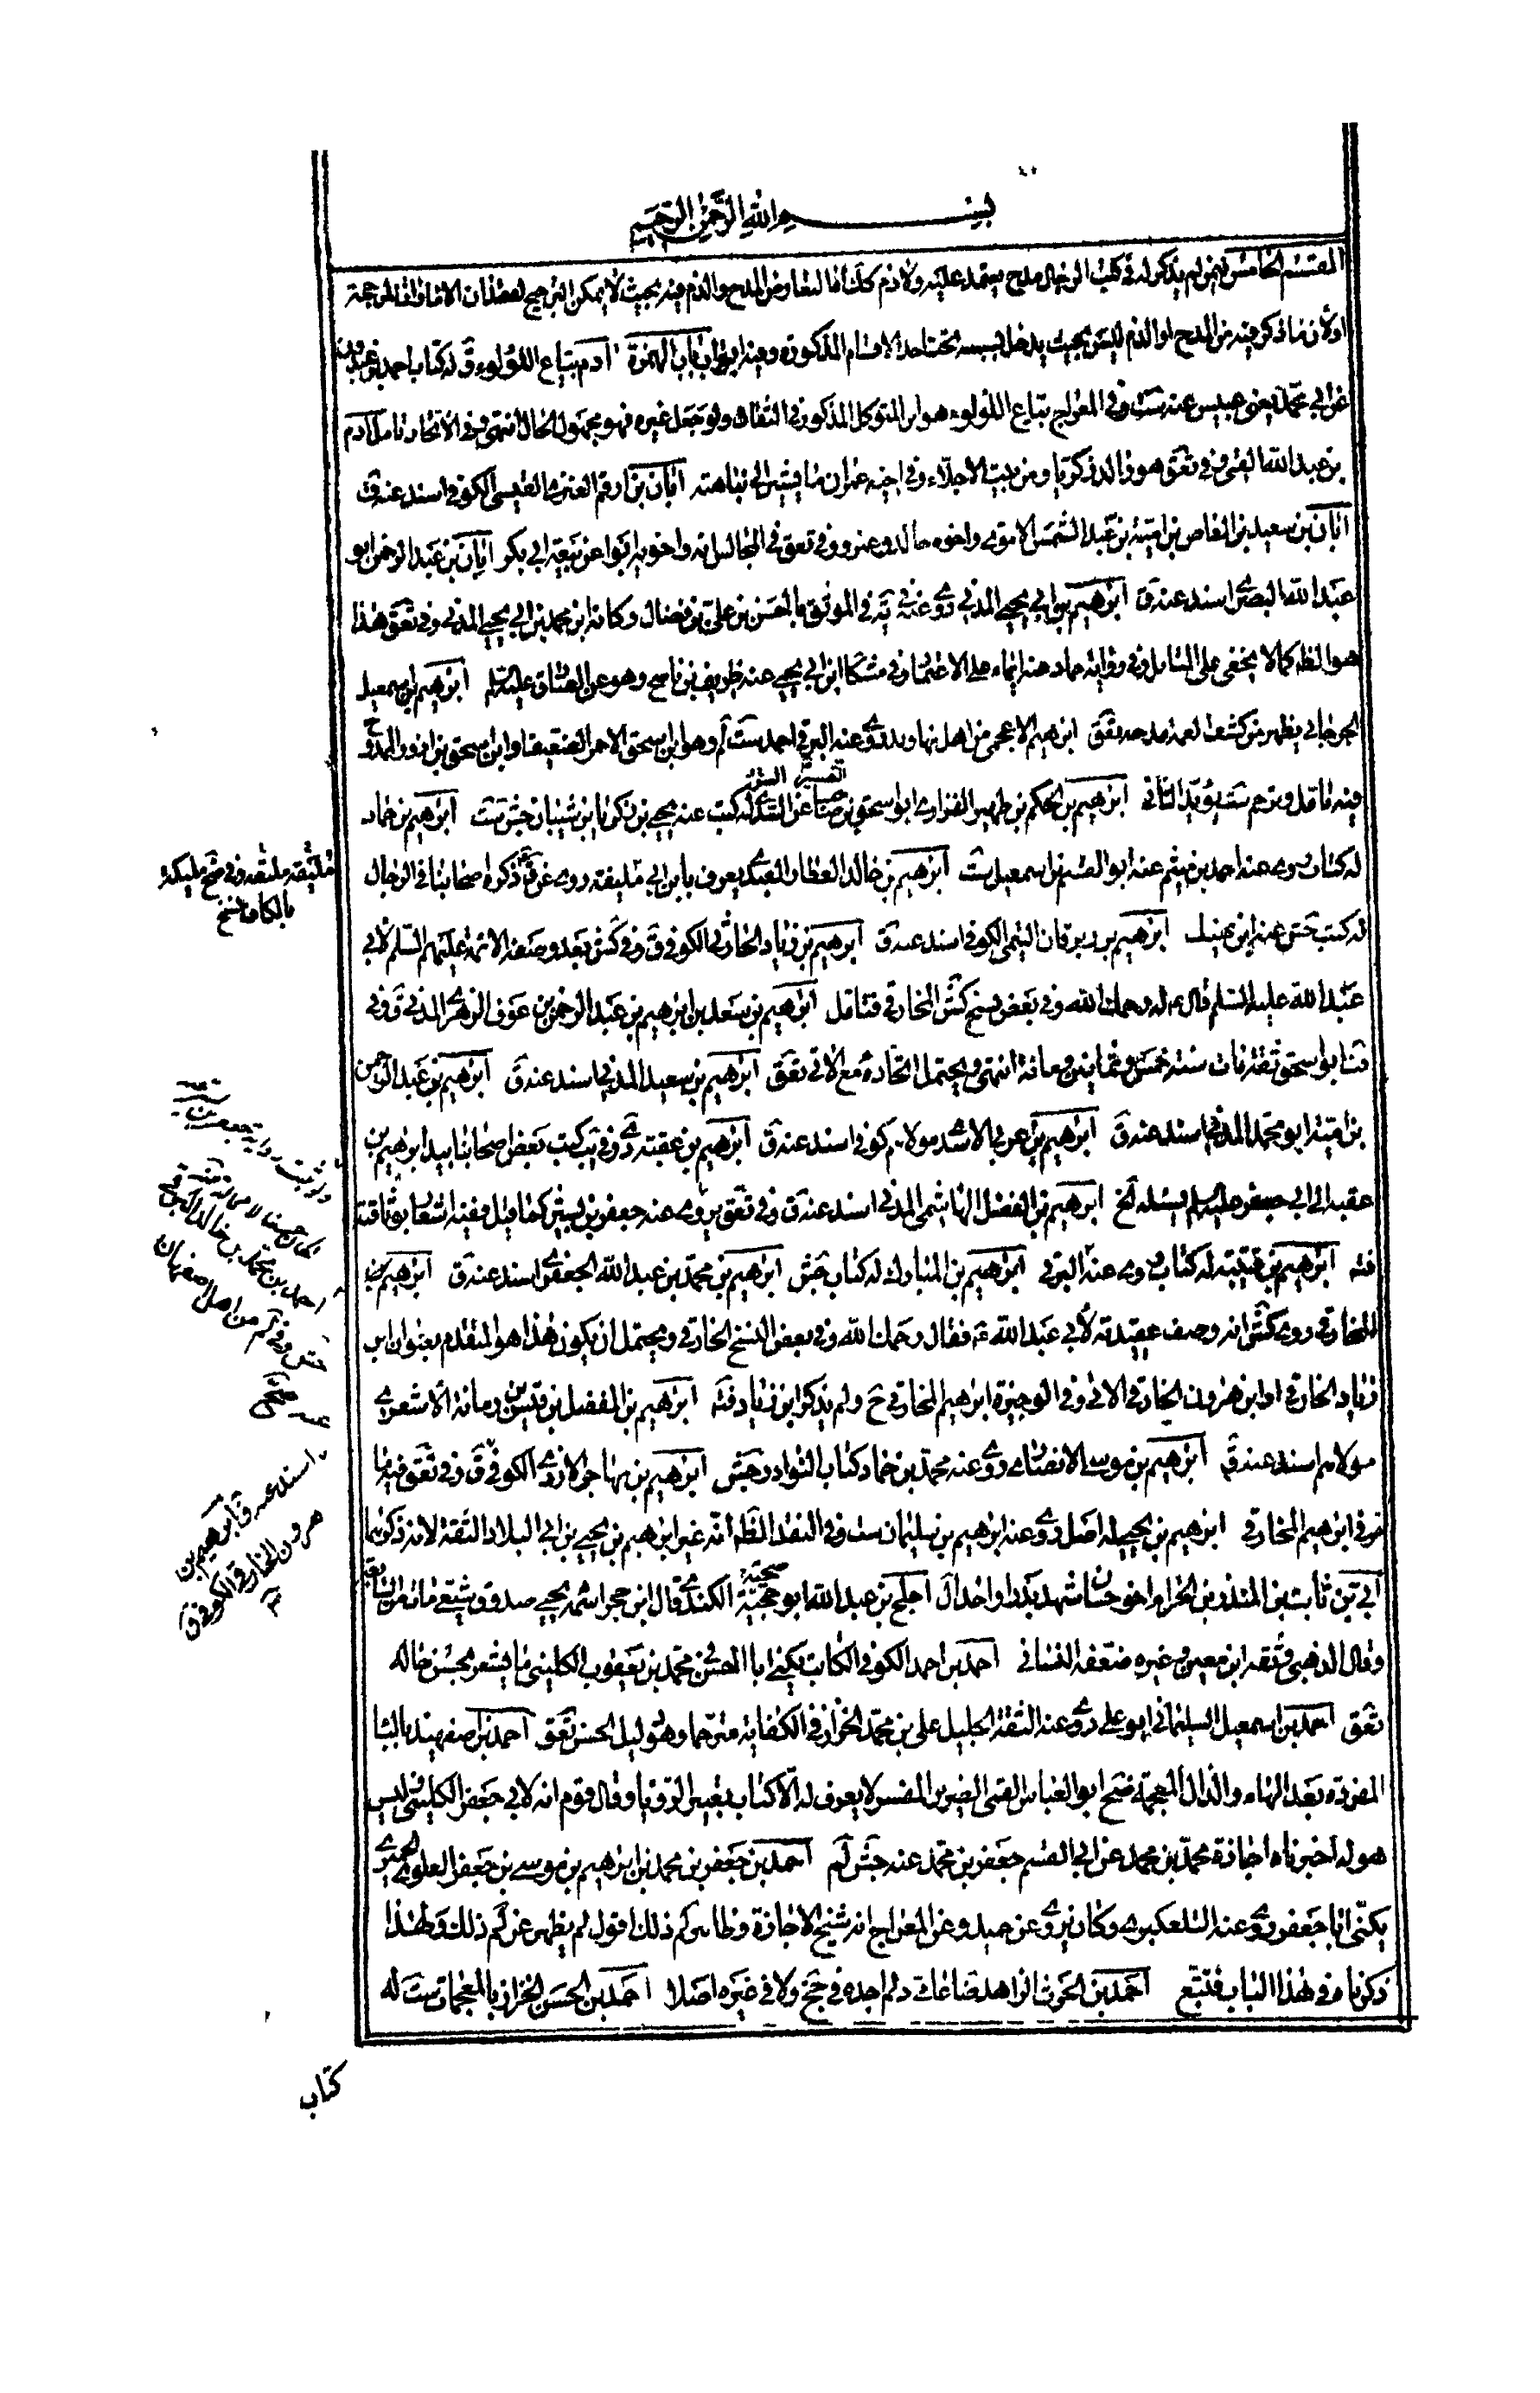 بسم الله الرحمن الرحيم
القسم الخامس فيمن لم يذكر له في كتب الرجال مدح يعتمد عليه ولا ذم كذلك اما لتعارض المدح والذم فيه بحيث لا يمكن الترجيح لفقدان الامارات المرجحة
اولان ما ذكر فيه من المدح او الذم ليس بحيث يدخل بسببه تحت احد الاقسام المذكورة وفيه ابواب باب الهمزة ادم بياع اللؤلؤ ق له كتاب احمد بن عبدون
عن ابي محمد عن حبيس عنه ست وفي المعراج بياع اللؤلؤ هو ابن المتوكل المذكور في الثقات ولو جعل غيره فهو مجهول الحال انتهى وفي الاتحاد تامل آدم
بن عبد الله القمي وفي تعق هو والد زكريا ومن بيت الاجلاء وفي اخيه عمران ما يشير الى نباهته ابان بن ارقم العنزي القيسي الكوفي اسند عنه ق
ابان بن سعيد بن العاص بن امية بن عبد الشمس الاموي واخوه خالد وعمرو وفي تعق في المجالس انه واخويه ابوا عن بيعة ابي بكر ابان بن عبد الرحمن ابو
عبد الله البصري اسند عنه ق ابرهيم بن ابي يحيى المدني روى عنه في يه في الموثق بالحسن بن علي بن فضال وكانه ابن محمد بن ابي يحيى المدني وفي تعق هذا
هو الظ كما لا يخفى على المتامل وفي رواية حماد عنه ايماء على الاعتماد وفي مشكا ابن ابي يحيى عنه ظريف بن ناصح وهو عن الصادق عليه السلم ابرهيم بن اسمعيل
الجرجاني يظهر من كشف الغمة مدحه تعق ابرهيم الاعجمي من اهل نهاوند روى عنه البرقي احمد ست لم وهو ابن اسحق الاحمر الضعيف او ابن اسحق بن ازور الممدوح
فيه تامل وترجم ست يؤيد الثاني ابرهيم بن الحكم بن ظهير الفزاري ابو اسحق صاحب التفسير عن السدي له كتب عنه يحيى بن زكريا بن شيبان جش ست ابرهيم بن حماد
له كتاب روى عنه احمد بن ميثم عنه ابو القسم بن اسمعيل ست ابرهيم بن خالد العطار العبدي يعرف بابن ابي مليقة روى عن ق ذكره اصحابنا في الرجال
له كتب جش عنه ابن نهيك ابرهيم بن زبرقان التيمي الكوفي اسند عنه ق ابرهيم بن زياد الخارفي الكوفي ق وفي كش بعد وصفه الائمة عليهم السلم لابي
عبد الله عليه السلم قال له رحمك الله وفي بعض نسخ كش المخارقي فتامل ابرهيم بن سعد بن ابرهيم بن عبد الرحمن بن عوف الزهري المدني ق وفي
قب ابو اسحق ثقة مات سنة خمس وثمانين ومائة انتهى ويحتمل اتحاده مع الاتي تعق ابرهيم بن سعيد المدني اسند عنه ق ابرهيم بن عبد الرحمن
بن امية ابو محمد المدني اسند عنه ق ابرهيم بن عربي الاسدي مولاهم كوفي اسند عنه ق ابرهيم بن عقبة دي وفي يب كتب بعض اصحابنا بيد ابرهيم بن
عقبة الى ابي جعفر عليه السلم يسئله الخ ابرهيم بن الفضل الهاشمي المدني اسند عنه ق وفي تعق يروى عنه جعفر بن بشير كما قيل ففيه اشعار بوثاقته
فته ابرهيم بن قتيبة له كتاب روى عنه البرقي ابرهيم بن المبارك له كتاب جش ابرهيم بن محمد بن عبد الله الجعفري اسند عنه ق ابرهيم
المخارقي روى كش انه وصف عقيدته لابي عبد الله ع فقال رحمك الله وفي بعض النسخ الخارفي ويحتمل ان يكون هذا هو المتقدم بعنوان ابن
زياد الخارقي او ابن هرون الخارقي الاتي وفي الوجيزة ابرهيم المخارقي ح ولم يذكر ابن زياد فته ابرهيم بن المفضل بن قيس بن رمانة الاشعري
مولاهم اسند عنه ق ابرهيم بن موسى الانصاري روى عنه محمد بن حماد كتاب النوادر جش ابرهيم بن مهاجر الازدي الكوفي ق وفي تعق فيه ما
مر في ابرهيم المخارقي ابرهيم بن يحيى له اصل روى عنه ابرهيم بن سليمان ست وفي النقد الظ انه غير ابرهيم بن يحيى بن ابي البلاد الثقة لانه ذكرهما
ابي بن ثابت بن المنذر بن الحزام اخو حسان شهد بدرا واحدا ل اجلح بن عبد الله ابو حجية الكندي قال ابن حجر اسمه يحيى صدوق شيعي مات من السابعة
وقال الذهبي وثقه ابن معين وغيره ضعفه النسائي احمد بن احمد الكوفي الكاتب يكنى ابا الحسن محمد بن يعقوب الكليني ما يشعر بحسن حاله
تعق احمد بن اسمعيل السليماني ابو علي روى عنه الثقة الجليل علي بن محمد الخزاز في الكفاية مترحما وهو دليل الحسن تعق احمد بن اصفهبد بالباء
المفردة بعد الهاء والذال المعجمة ضح ابو العباس القمي الضرير المفسر لا يعرف له الا كتاب تعبير الرؤيا وقال قوم انه لابي جعفر الكليني وليس
هو له اخبرناه اجازة محمد بن محمد عن ابي القسم جعفر بن محمد عنه جش لم احمد بن جعفر بن محمد بن ابرهيم بن موسى بن جعفر العلوي الحميري
يكنى ابا جعفر روى عنه التلعكبري وكان يروى عن حميد وعن المعراج انه شيخ الاجازة وظاهر لم ذلك اقول لم يظهر عن لم ذلك ولهذا
ذكرناه في هذا الباب فتتبع احمد بن الحرث الزاهد ضا عاقي د لم اجده في جخ ولا في غيره اصلا احمد بن الحسن الخزاز بالمعجمات ست له
مليقة ملقفة وفي ضح مليكة
بالكاف نسخ
احمد بن محمد بن خالد البرقي
من اهل اصفهان
اسند عنه ق ابرهيم بن
هرون الخارقي الكوفي ق
كتاب